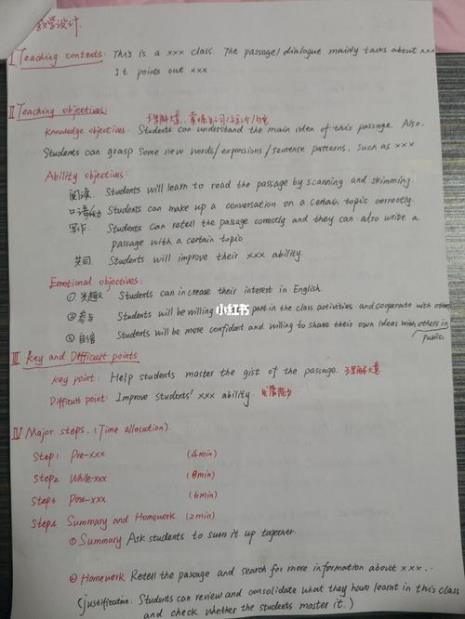 教学设计
I Teaching contents: This is a xxx class. The passage/dialogue mainly talks about xxx
It points out xxx
II Teaching objectives:
理解大意、掌握
Knowledge objectives: Students can understand the main idea of this passage. Also,
Students can grasp some new words/expressions/sentence patterns, such as xxx
Ability objectives:
阅读: Students will learn to read the passage by scanning and skimming.
口语 Students can make up a conversation on a certain topic correctly.
写作: Students can retell the passage correctly and they can also write a
passage with a certain topic
共同: Students will improve their xxx ability.
Emotional objectives:
① 兴趣 Students can increase their interest in English
② 参与 Students will be willing part in the class activities and cooperate with others
③ 自信 Students will be more confident and willing to share their own ideas with others in
public.
小红书
III Key and Difficult points
Key point: Help students master the gist of the passage. 理解大意
Difficult point: Improve students' xxx ability.
IV Major steps. (Time allocation)
Step1 Pre-xxx (2min)
Step2 While-xxx (8min)
Step3 Post-xxx (6min)
Step4 Summary and Homework (2min)
① Summary Ask students to sum it up together.
② Homework Retell the passage and search for more information about xxx.
(Justification: Students can review and consolidate what they have learnt in this class
and check whether the students master it.)